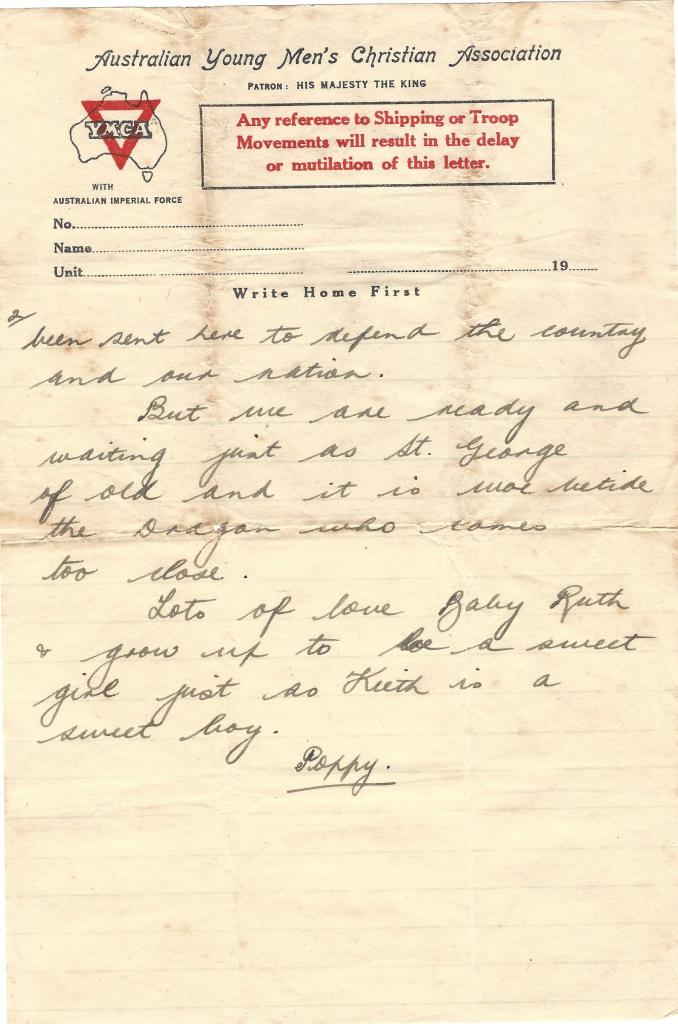 Australian Young Men's Christian Association
PATRON: HIS MAJESTY THE KING
YMCA
WITH
AUSTRALIAN IMPERIAL FORCE
Any reference to Shipping or Troop
Movements will result in the delay
or mutilation of this letter.
No.
Name
Unit 19
Write Home First
2/
been sent here to defend the country
and our nation.
But we are ready and
waiting just as St. George
of old and it is woe betide
the Dragon who comes
too close.
Lots of love Baby Ruth
& grow up to be a sweet
girl just as Kieth is a
sweet boy.
Poppy.